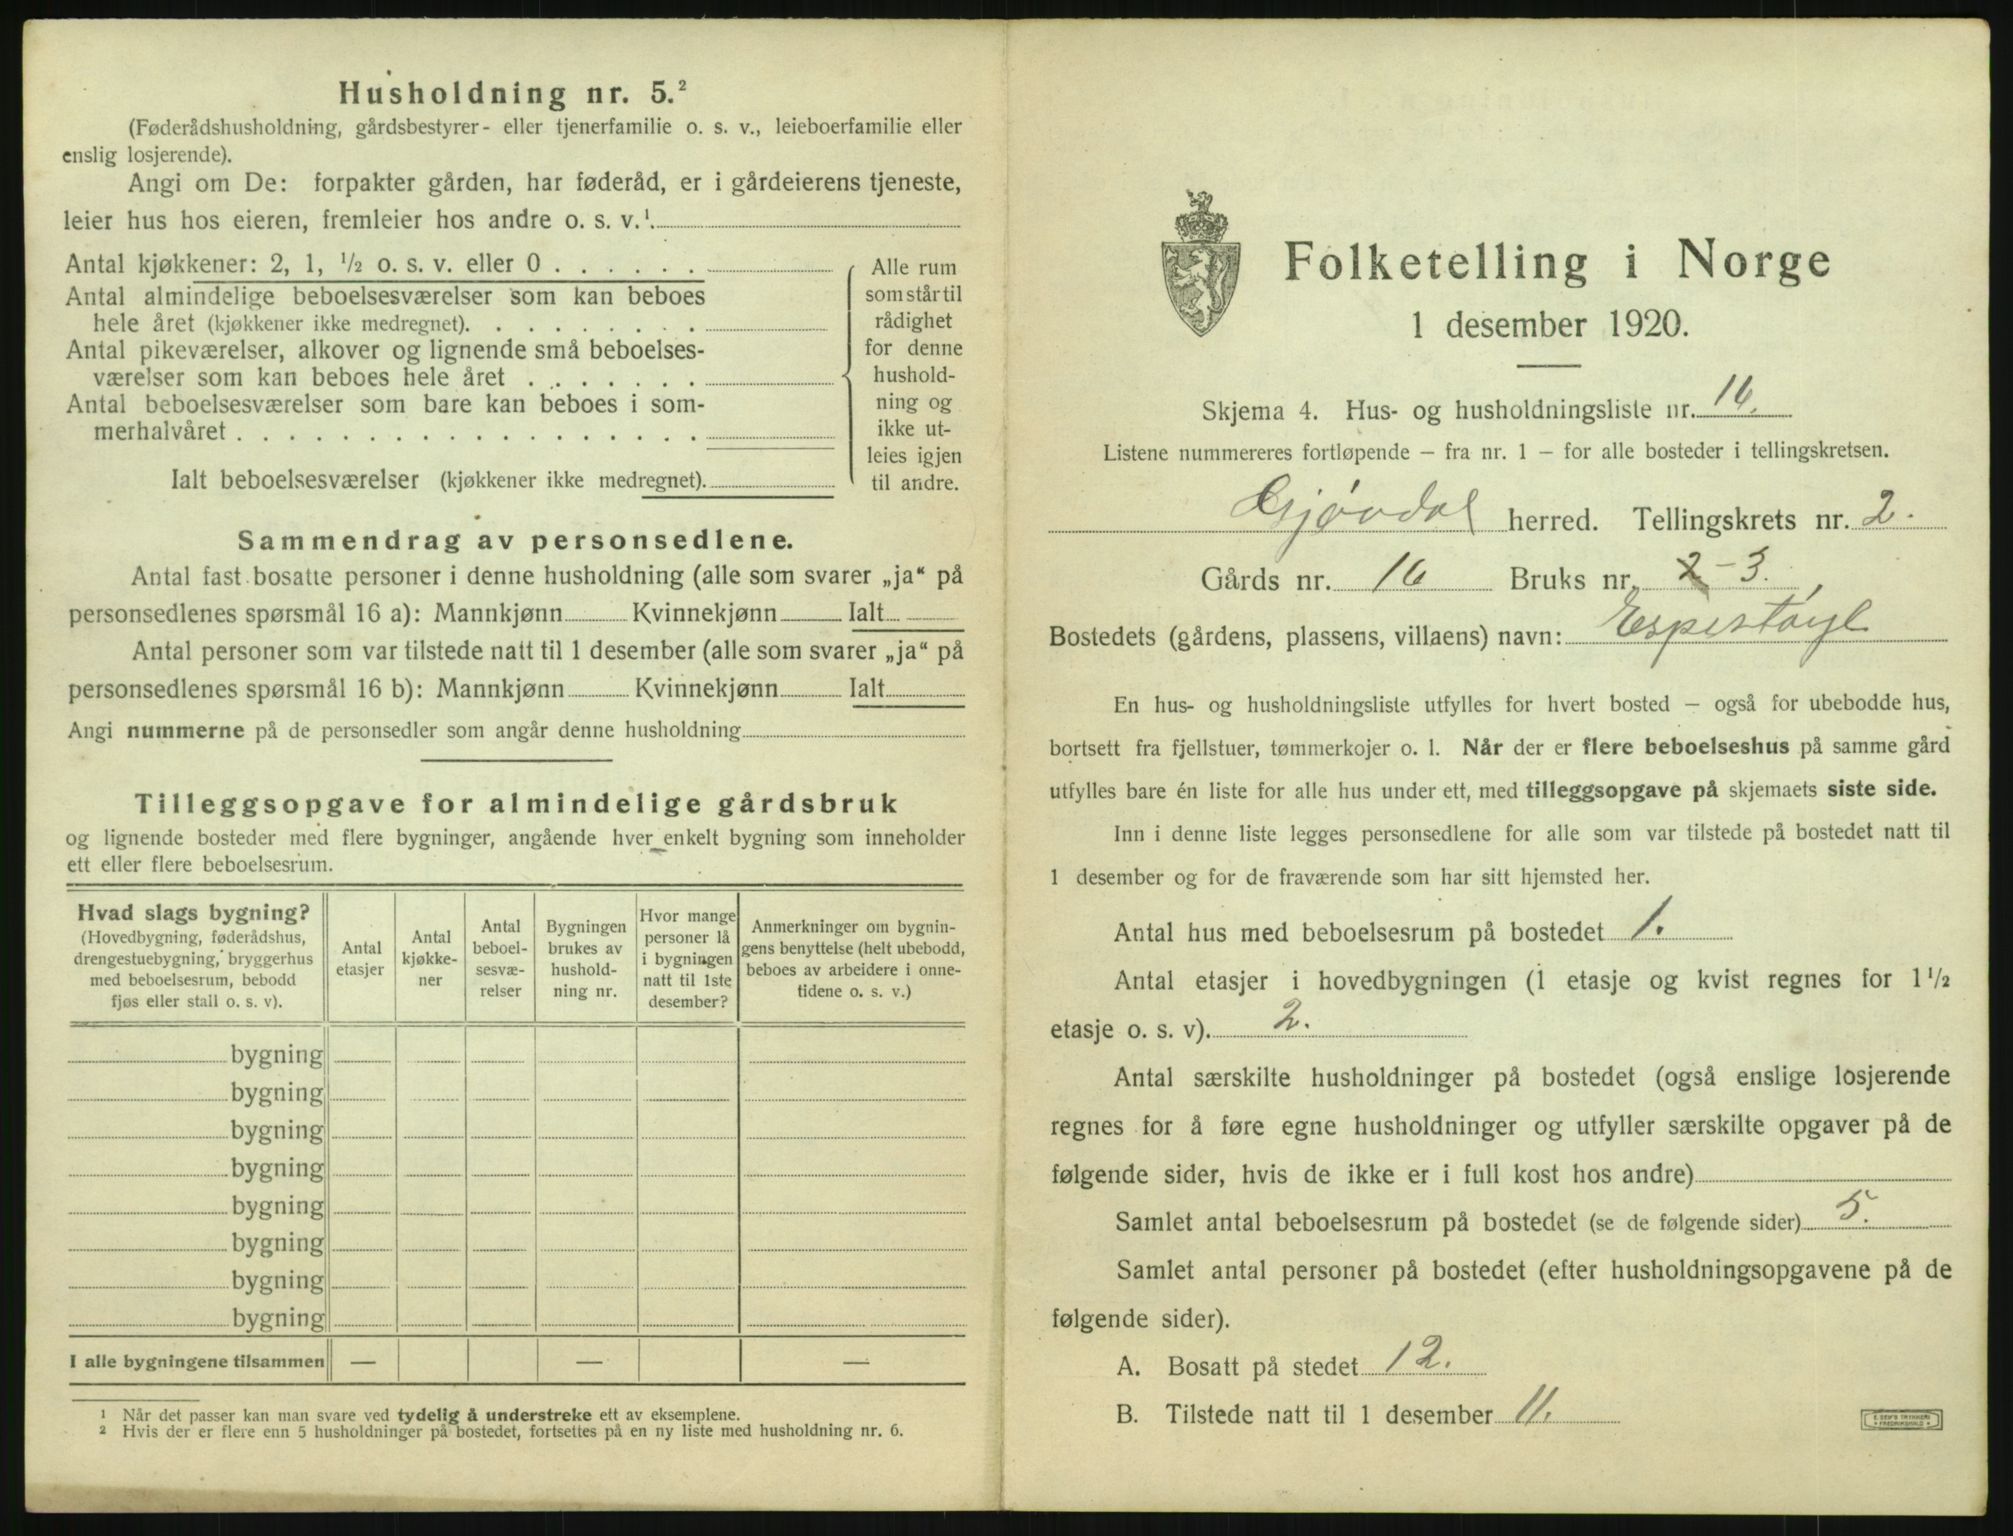 Husholdning nr. 5.²
(Føderådshusholdning, gårdsbestyrer- eller tjenerfamilie o. s. v., leieboerfamilie eller
enslig losjerende).
Angi om De: forpakter gården, har føderåd, er i gårdeierens tjeneste,
leier hus hos eieren, fremleier hos andre o. s. v.¹
Antal kjøkkener: 2, 1, ½ o. s. v. eller 0
Antal almindelige beboelsesværelser som kan beboes
hele året (kjøkkener ikke medregnet).
Antal pikeværelser, alkover og lignende små beboelses-
værelser som kan beboes hele året
Antal beboelsesværelser som bare kan beboes i som-
merhalvåret
Ialt beboelsesværelser (kjøkkener ikke medregnet).
Alle rum
som står til
rådighet
for denne
hushold-
ning og
ikke ut-
leies igjen
til andre.
Sammendrag av personsedlene.
Antal fast bosatte personer i denne husholdning (alle som svarer „ja“ på
personsedlenes spørsmål 16 a): Mannkjønn Kvinnekjønn Ialt
Antal personer som var tilstede natt til 1 desember (alle som svarer „ja“ på
personsedlenes spørsmål 16 b): Mannkjønn Kvinnekjønn Ialt
Angi nummerne på de personsedler som angår denne husholdning
Tilleggsopgave for almindelige gårdsbruk
og lignende bosteder med flere bygninger, angående hver enkelt bygning som inneholder
ett eller flere beboelsesrum.
Hvad slags bygning?
(Hovedbygning, føderådshus,
drengestuebygning, bryggerhus
med beboelsesrum, bebodd
fjøs eller stall o. s. v).
Antal
etasjer
Antal
kjøkke-
ner
Antal
beboel-
sesvæ-
relser
Bygningen
brukes av
hushold-
ning nr.
Hvor mange
personer lå
i bygningen
natt til 1ste
desember?
Anmerkninger om bygnin-
gens benyttelse (helt ubebodd,
beboes av arbeidere i onne-
tidene o. s. v.)
bygning
bygning
bygning
bygning
bygning
bygning
bygning
bygning
I alle bygningene tilsammen — — —
¹ Når det passer kan man svare ved tydelig å understreke ett av eksemplene.
² Hvis der er flere enn 5 husholdninger på bostedet, fortsettes på en ny liste med husholdning nr. 6.
Folketelling i Norge
1 desember 1920.
Skjema 4. Hus- og husholdningsliste nr. 16.
Listene nummereres fortløpende – fra nr. 1 – for alle bosteder i tellingskretsen.
Gjøvdal herred. Tellingskrets nr. 2.
Gårds nr. 16 Bruks nr. 2 – 3.
Bostedets (gårdens, plassens, villaens) navn: Espestøyl
En hus- og husholdningsliste utfylles for hvert bosted – også for ubebodde hus,
bortsett fra fjellstuer, tømmerkojer o. l. Når der er flere beboelseshus på samme gård
utfylles bare én liste for alle hus under ett, med tilleggsopgave på skjemaets siste side.
Inn i denne liste legges personsedlene for alle som var tilstede på bostedet natt til
1 desember og for de fraværende som har sitt hjemsted her.
Antal hus med beboelsesrum på bostedet 1.
Antal etasjer i hovedbygningen (1 etasje og kvist regnes for 1½
etasje o. s. v). 2.
Antal særskilte husholdninger på bostedet (også enslige losjerende
regnes for å føre egne husholdninger og utfyller særskilte opgaver på de
følgende sider, hvis de ikke er i full kost hos andre)
Samlet antal beboelsesrum på bostedet (se de følgende sider) 5.
Samlet antal personer på bostedet (efter husholdningsopgavene på de
følgende sider).
A. Bosatt på stedet 12.
B. Tilstede natt til 1 desember 11.